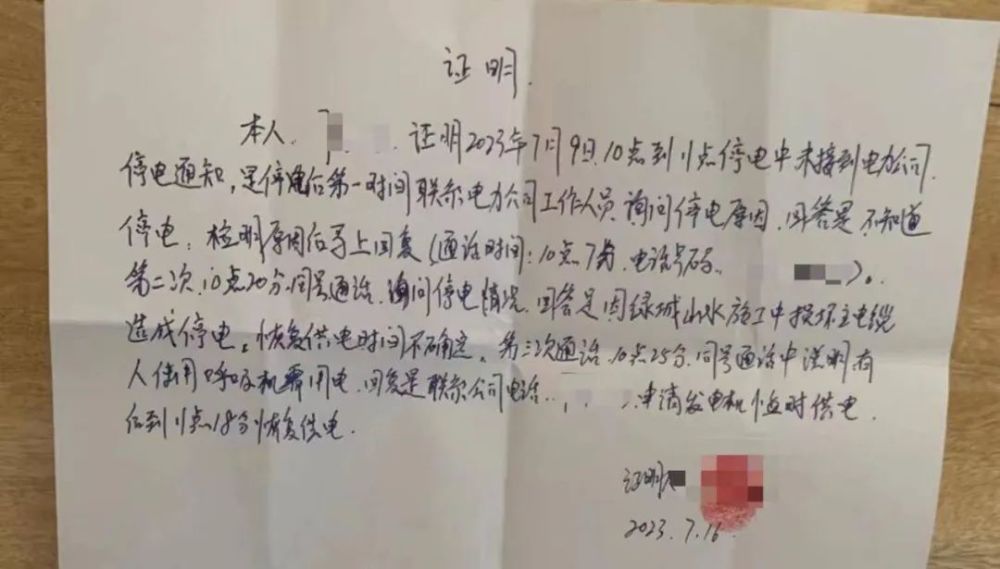 证明.
本人. 证明2023年7月9日.10点到11点停电中未接到电力公司.
停电通知,是停电后第一时间联系电力公司工作人员.询问停电原因.回答是不知道
停电.检明原因后马上回复(通话时间:10点7分.电话号码..)。
第二次.10点20分.同号通话.询问停电情况.回答是因绿城山水施工中损坏主电缆
造成停电。恢复供电时间不确定。第三次通话.10点25分.同号通话中说明有
人使用呼吸机需用电.回复是联系公司电话...申请发电机临时供电.
后到11点18分恢复供电.
证明人
2023.7.16